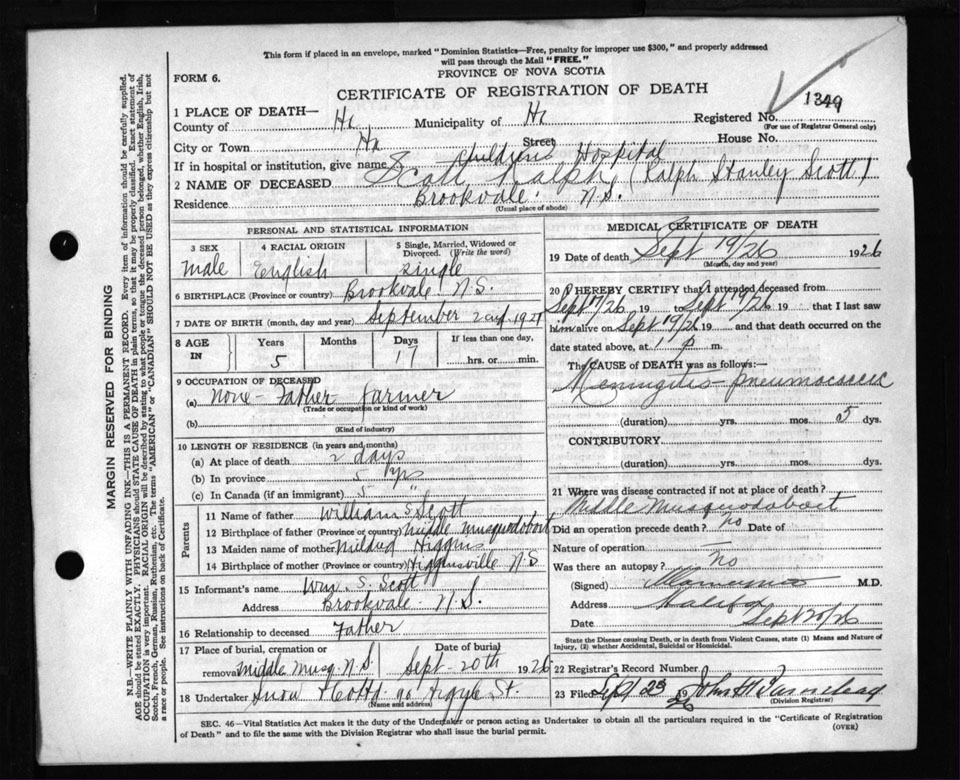 This form if placed in an envelope, marked "Dominion Statistics—Free, penalty for improper use $300," and properly addressed
will pass through the Mail "FREE."
PROVINCE OF NOVA SCOTIA
FORM 6.
CERTIFICATE OF REGISTRATION OF DEATH
1349
1 PLACE OF DEATH—
County of Hx Municipality of Hx Registered No.
(For use of Registrar General only)
City or Town Hx Street House No.
If in hospital or institution, give name Children's Hospital
2 NAME OF DECEASED Scott Ralph (Ralph Stanley Scott)
Residence Brookvale N.S.
(Usual place of abode)
PERSONAL AND STATISTICAL INFORMATION
3 SEX 4 RACIAL ORIGIN 5 Single, Married, Widowed or Divorced. (Write the word)
Male English Single
6 BIRTHPLACE (Province or country) Brookvale N.S.
7 DATE OF BIRTH (month, day and year) September 2nd 1921
8 AGE IN Years Months Days If less than one day,
5 17 hrs. or min.
9 OCCUPATION OF DECEASED
(a) None - Father farmer
(Trade or occupation or kind of work)
(b)
(Kind of industry)
10 LENGTH OF RESIDENCE (in years and months)
(a) At place of death 2 days
(b) In province 5 yrs
(c) In Canada (if an immigrant) 5 "
Parents
11 Name of father William S. Scott
12 Birthplace of father (Province or country) Middle Musquodoboit
13 Maiden name of mother Mildred Higgins
14 Birthplace of mother (Province or country) Higginsville N.S
15 Informant's name Wm. S. Scott
Address Brookvale N.S.
16 Relationship to deceased Father
17 Place of burial, cremation or removal Date of burial
Middle Musq. N.S Sept - 20th 1926
18 Undertaker Snow & Co Ltd. 90 Argyle St.
(Name and address)
MEDICAL CERTIFICATE OF DEATH
19 Date of death Sept 19/26 1926
(Month, day and year)
20 I HEREBY CERTIFY that I attended deceased from
Sept 17/26 19 to Sept 19/26 19 that I last saw
him alive on Sept 19/26 19 and that death occurred on the
date stated above, at 1 p m.
The CAUSE OF DEATH was as follows:
Meningitis - pneumococcic
(duration) yrs. mos. 5 dys.
CONTRIBUTORY
(duration) yrs. mos. dys.
21 Where was disease contracted if not at place of death?
Middle Musquodoboit
Did an operation precede death? no Date of
Nature of operation
Was there an autopsy? No
(Signed) M.D.
Address Halifax
Date Sept 20/26
State the Disease causing Death, or in death from Violent Causes, state (1) Means and Nature of
Injury, (2) whether Accidental, Suicidal or Homicidal.
22 Registrar's Record Number
23 Filed Sept 23 1926 John H.
(Division Registrar)
SEC. 46—Vital Statistics Act makes it the duty of the Undertaker or person acting as Undertaker to obtain all the particulars required in the "Certificate of Registration
of Death" and to file the same with the Division Registrar who shall issue the burial permit.
(OVER)
MARGIN RESERVED FOR BINDING
N.B.—WRITE PLAINLY WITH UNFADING INK—THIS IS A PERMANENT RECORD. Every item of information should be carefully supplied.
AGE should be stated EXACTLY. PHYSICIANS should STATE CAUSE OF DEATH in plain terms, so that it may be properly classified. Exact statement of
OCCUPATION is very important. RACIAL ORIGIN will be described by stating to what people or tongue the deceased person belonged, whether English, Irish,
Scotch, French, German, Russian, Ruthenian, etc. The terms "AMERICAN" or "CANADIAN" SHOULD NOT BE USED as they express citizenship but not
a race or people. See instructions on back of Certificate.